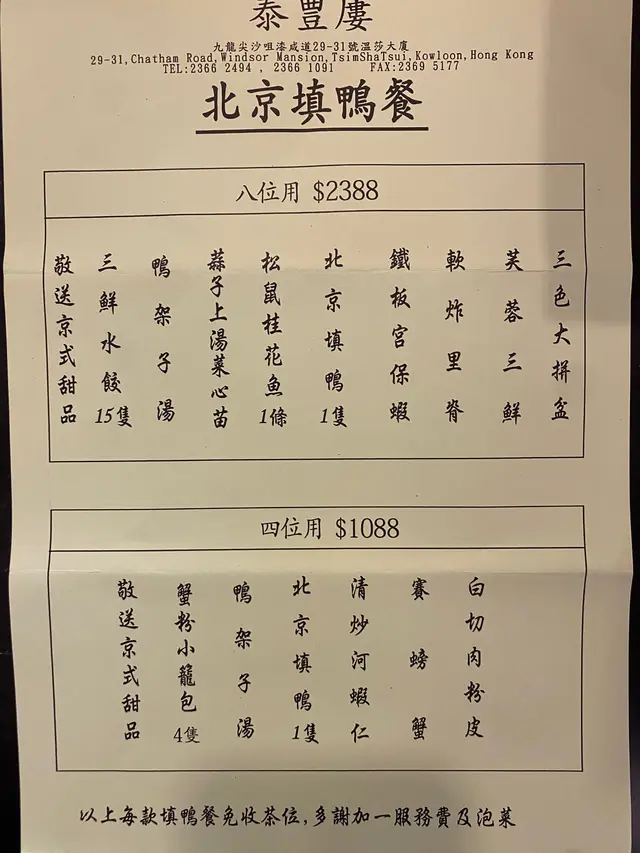 泰豐廔
九龍尖沙咀漆咸道29-31號溫莎大廈
29-31,Chatham Road,Windsor Mansion,TsimShaTsui,Kowloon,Hong Kong
TEL:2366 2494 , 2366 1091 FAX:2369 5177
北京填鴨餐
八位用 $2388
三色大拼盆
芙蓉三鮮
軟炸里脊
鐵板宮保蝦
北京填鴨1隻
松鼠桂花魚1條
蒜子上湯菜心苗
鴨架子湯
三鮮水餃15隻
敬送京式甜品
四位用 $1088
白切肉粉皮
賽螃蟹
清炒河蝦仁
北京填鴨1隻
鴨架子湯
蟹粉小籠包4隻
敬送京式甜品
以上每款填鴨餐免收茶位,多謝加一服務費及泡菜